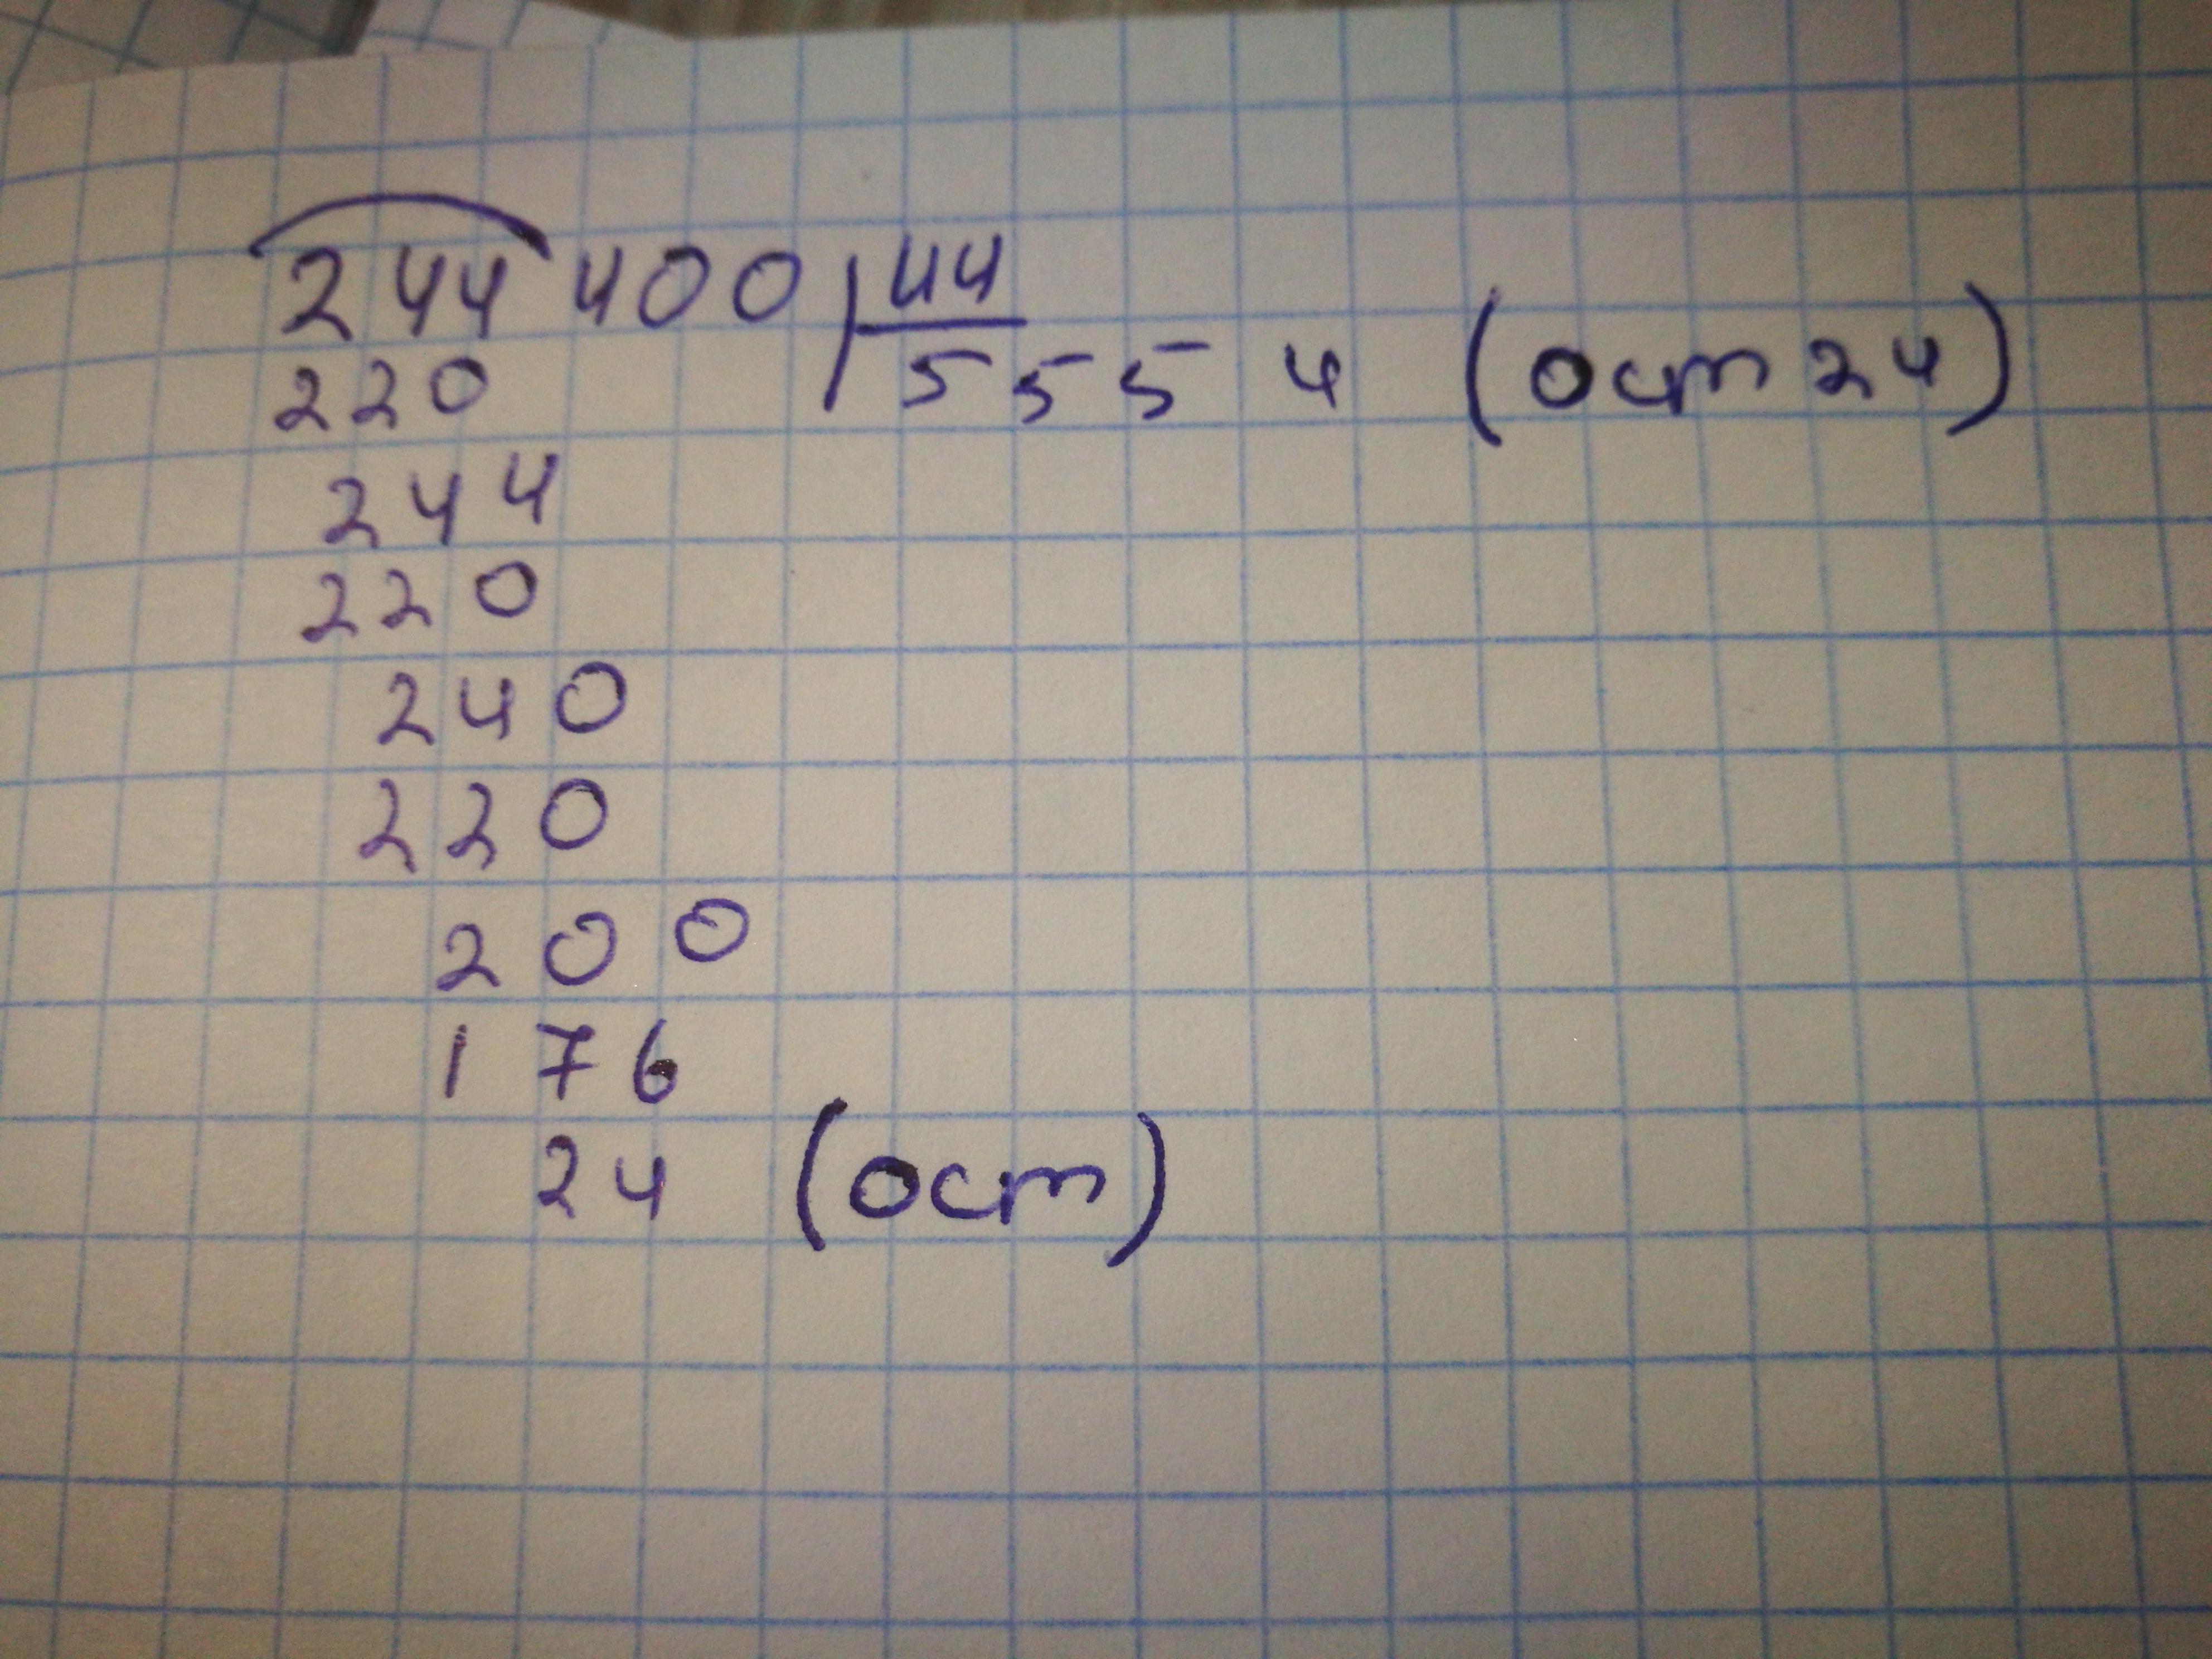 244400 44
220 5554 (ост 24)
244
220
240
220
200
176
24 (ост)